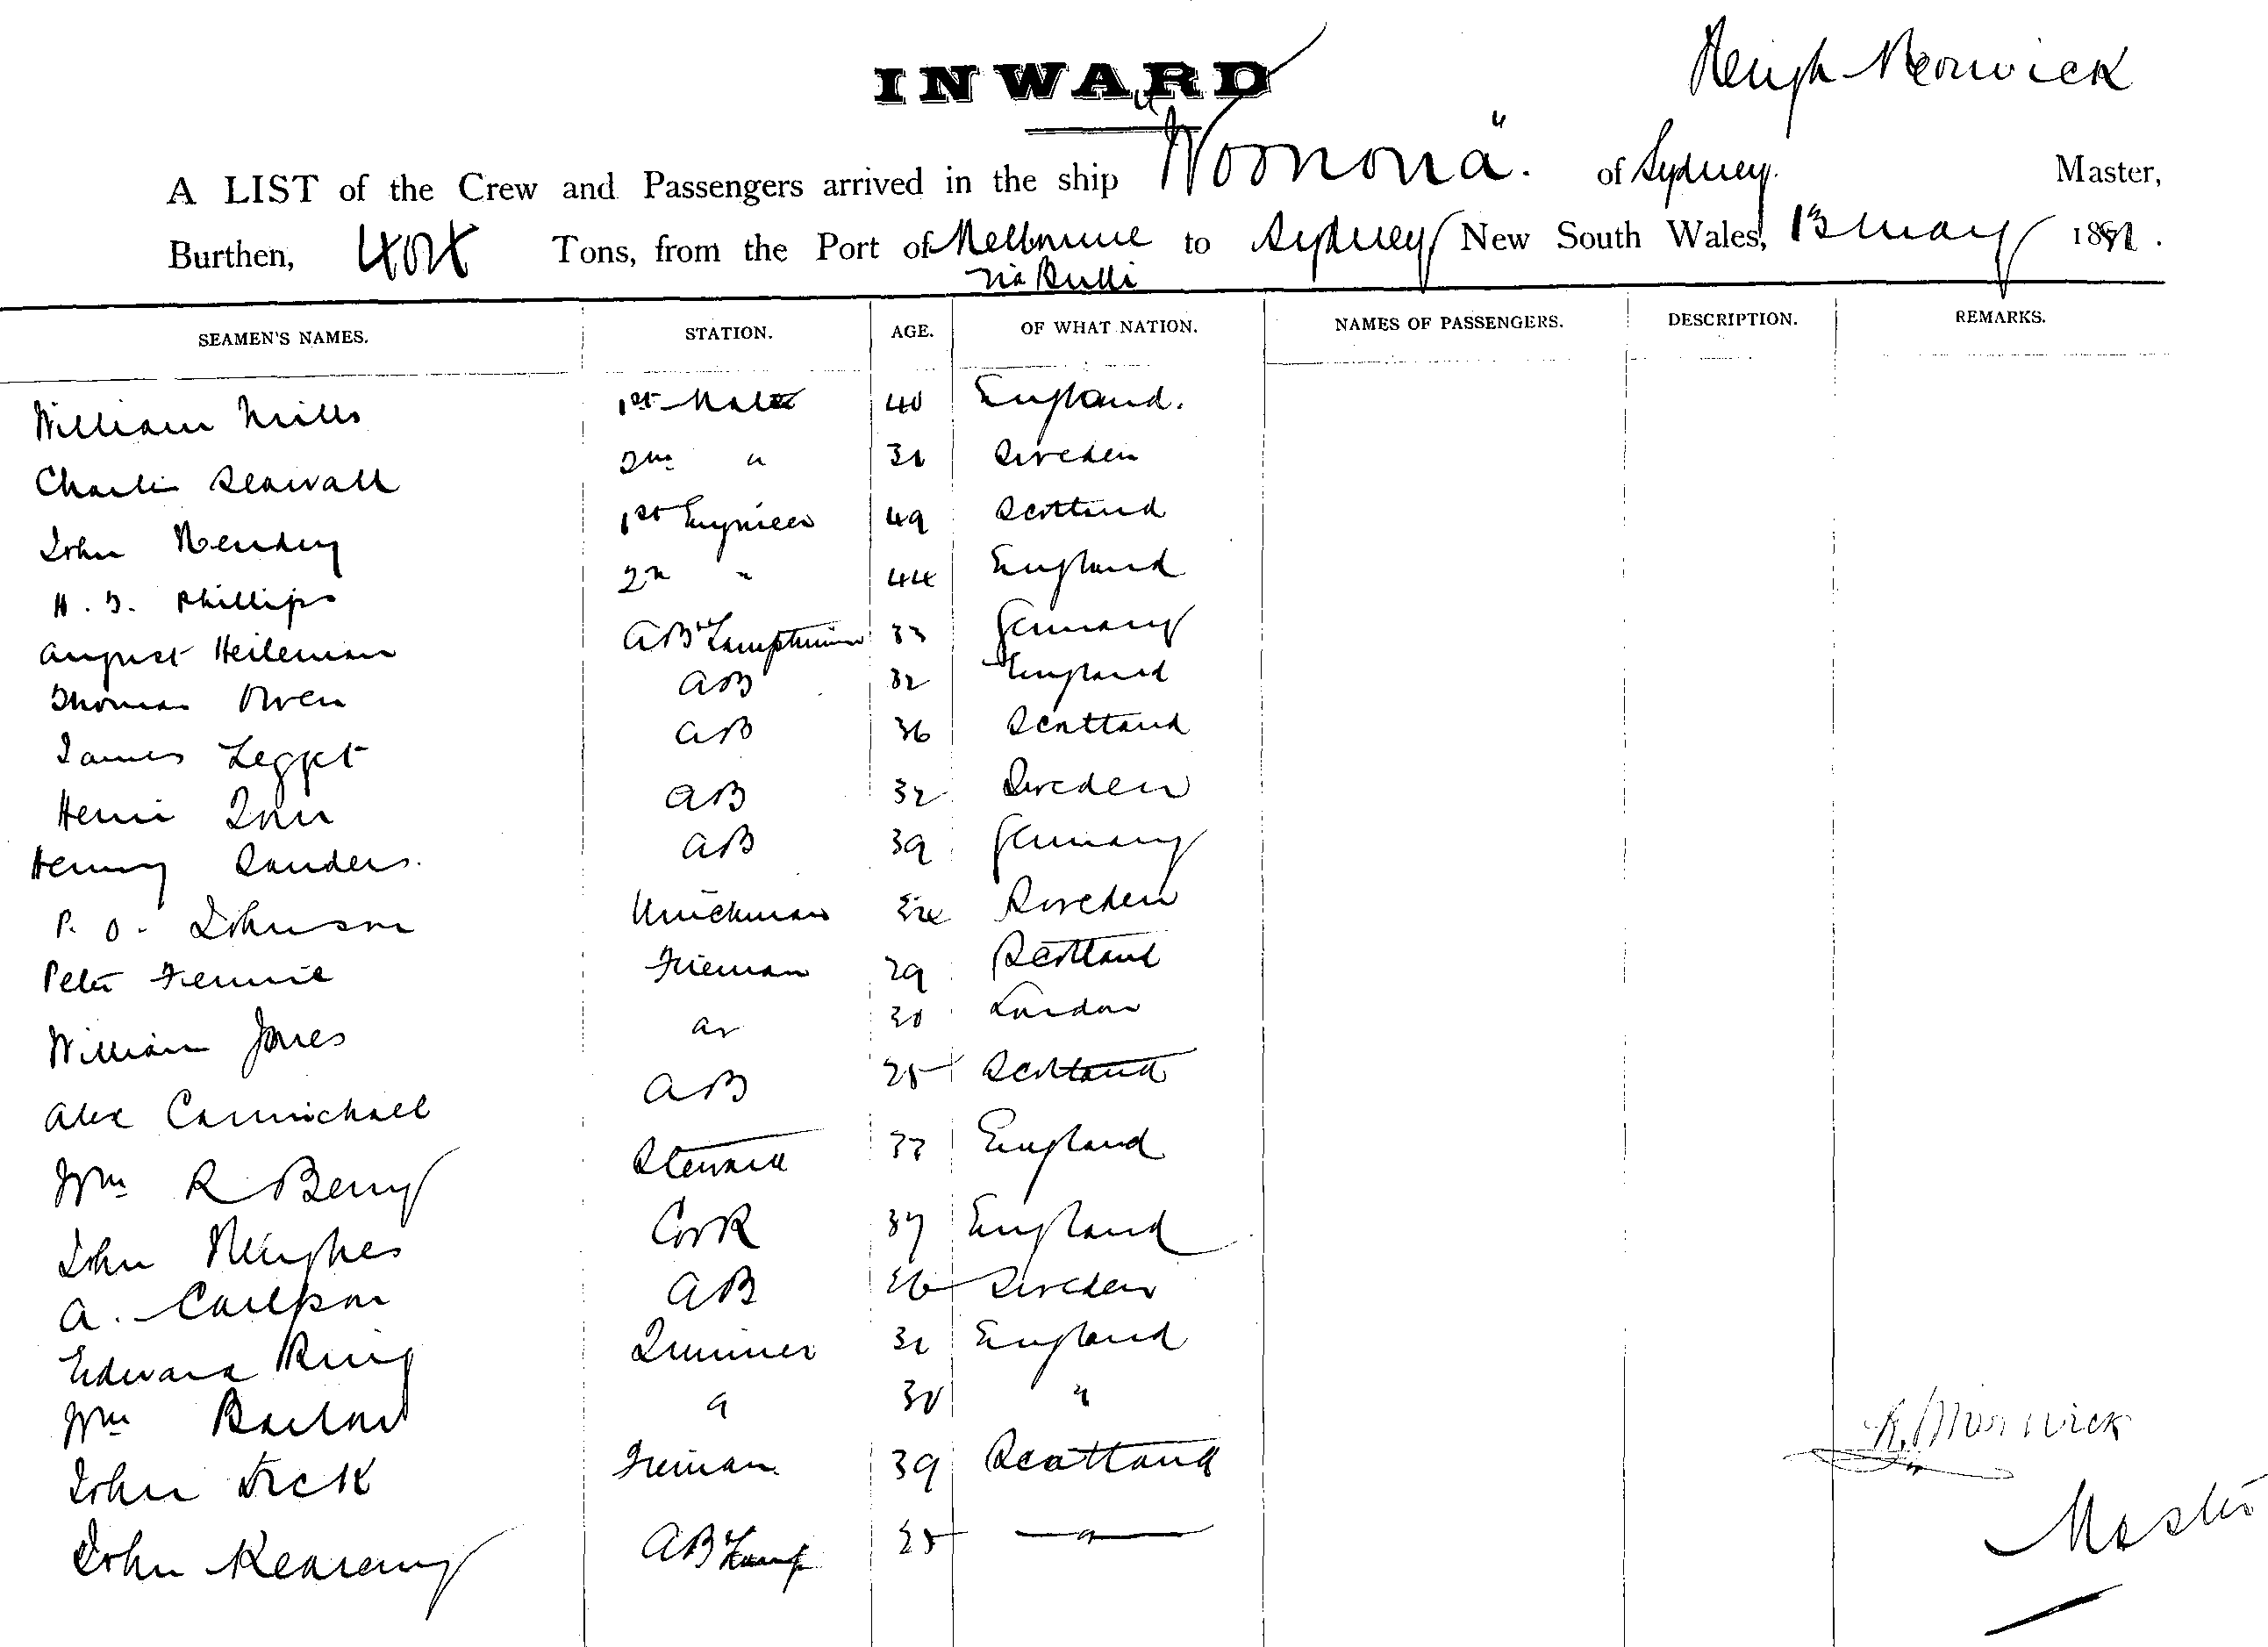 INWARD
A LIST of the Crew and Passengers arrived in the ship "Woonona". of Sydney. Master,
Burthen, Tons, from the Port of Melbourne to Sydney New South Wales, 13 May 189
via Bulli
SEAMEN'S NAMES. STATION. AGE. OF WHAT NATION. NAMES OF PASSENGERS. DESCRIPTION. REMARKS.
William Mills 1st Mate 40 England.
Charlie 2nd " 31 Sweden
John 1st Engineer 49 Scotland
H. Phillips 2n " 44 England
August Heileman AB & Lamptrimmer 33 Germany
Thomas Owen AB 32 England
James Legget AB 36 Scotland
AB 32 Sweden
Henry Sanders. AB 39 Germany
P. O. Johnson Winchman Sweden
Peter Fireman 29 Scotland
William Jones 30 London
Alex Carmichael AB 25 Scotland
Wm R Berry Steward 37 England
John Hughes Cook 37 England
A. Carlson AB 26 Sweden
Edward Ring Trimmer 31 England
Wm Barlow " 30 "
John Dick Fireman 39 Scotland
John Kearany AB & Lamp 25 "
Master